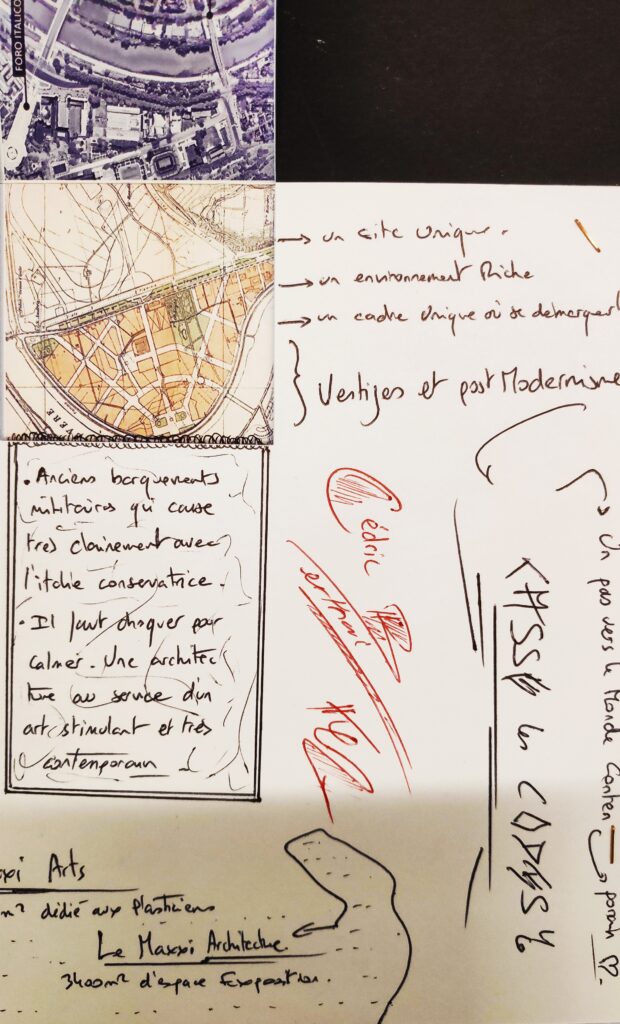 FORO ITALICO
→ un site unique.
→ un environnement Riche
→ un cadre unique où se démarquer
Vestiges et post Modernisme
• Anciens barquements
militaires qui cause
très clairement avec
l'italie conservatrice.
• Il faut choquer pour
calmer. Une architec
ture au service d'un
art stimulant et très
contemporain
Cédric
un pas vers le Monde Conten
→ porain ♡.
les CODES
Arts
m² dédié aux Plasticiens
Le Maxxi Architecture.
3400m² d'espace
VERE